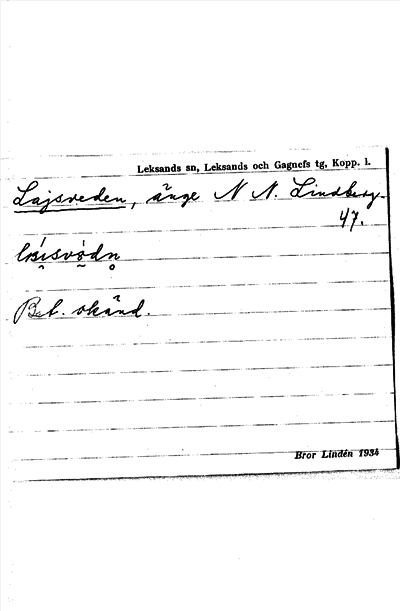 Leksands sn, Leksands och Gagnefs tg, Kopp. l.
Lajsveden, änge N N. Lindberg
47.
Bet. okänd.
Bror Lindén 1934